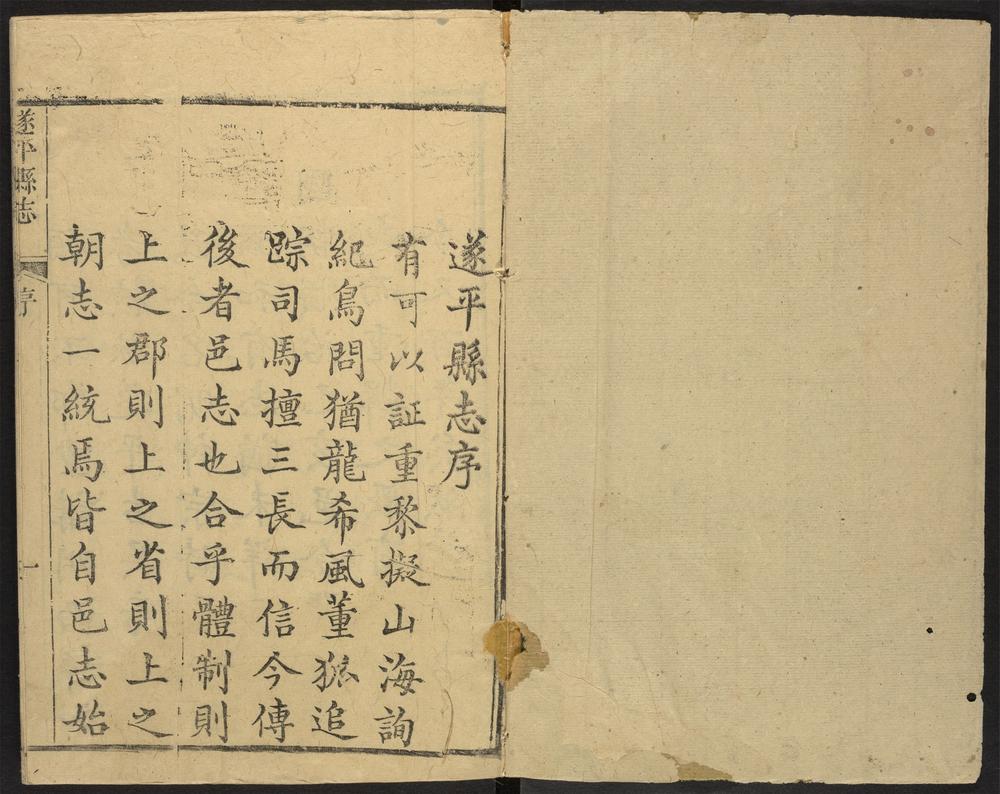 遂平縣志序
有可以証重黎擬山海詢
紀鳥問猶龍希風董狐追
踪司馬擅三長而信今傳
後者邑志也合乎體制則
上之郡則上之省則上之
朝志一統焉皆自邑志始
遂平縣志
序
一